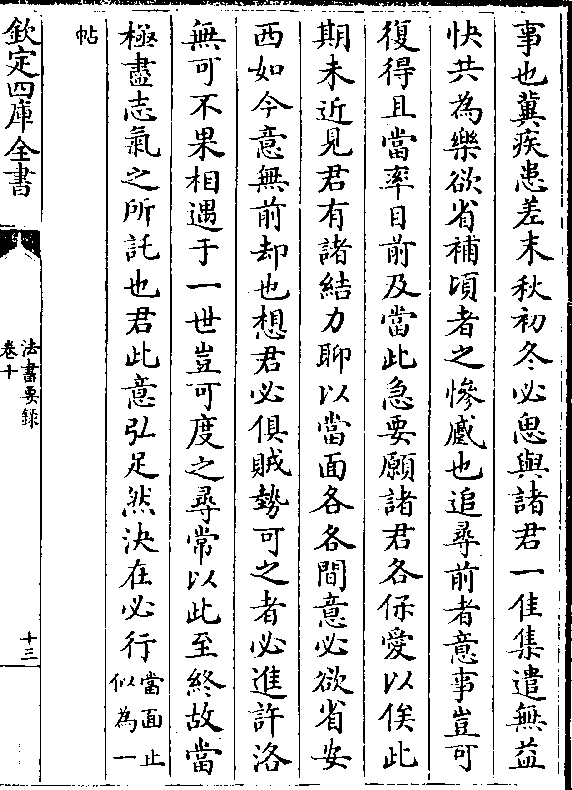 事也冀疾患差末秋初冬必思與諸君一佳集遣無益
快共為樂欲省補頃者之慘慼也追尋前者意事豈可
復得且當率目前及當此急要願諸君各保愛以俟此
期未近見君有諸結力聊以當面各各間意必欲省安
西如今意無前却也想君必俱賊勢可之者必進許洛
無可不果相遇于一世豈可度之尋常以此至終故當
極盡志氣之所託也君此意弘足然決在必行當面止
似為一
帖
欽定四庫全書
法書要録
卷十
十三